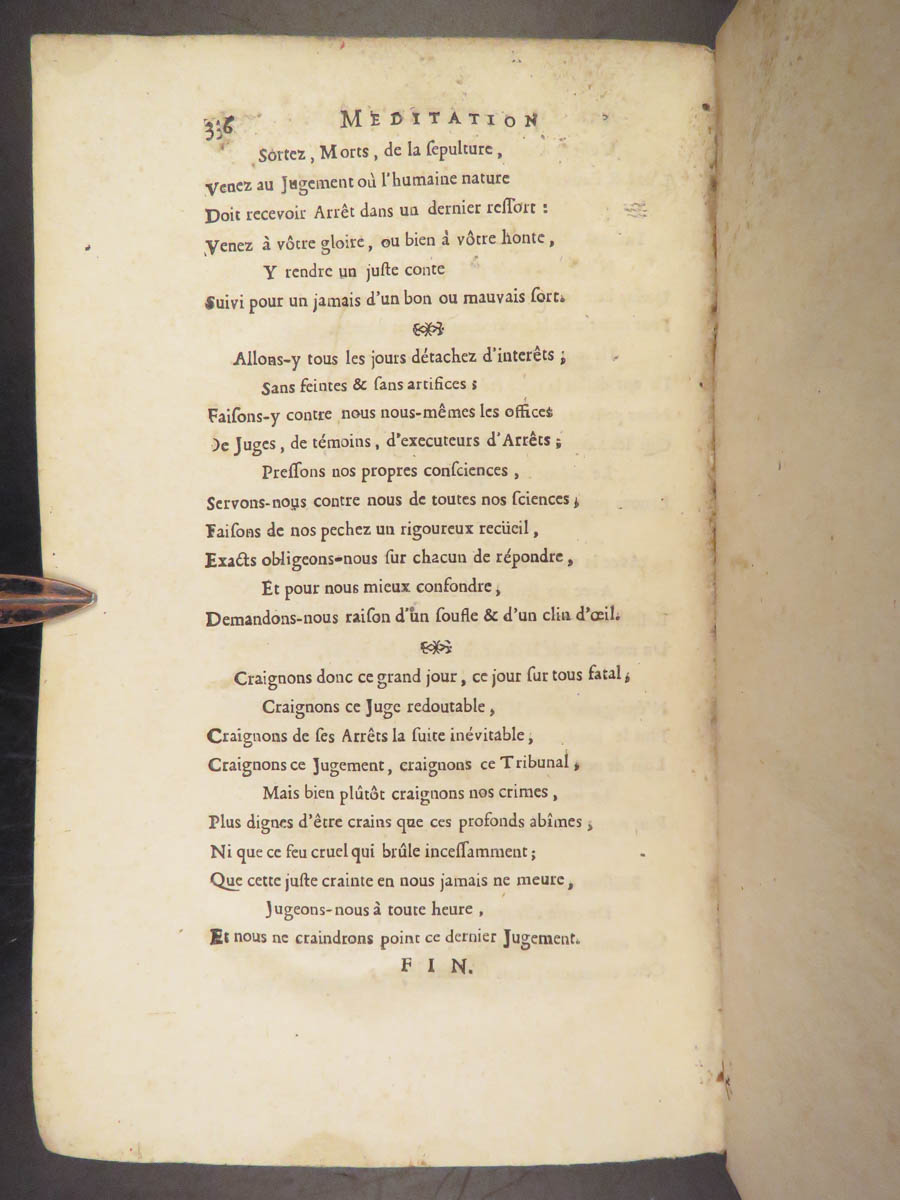 336 MEDITATION
Sortez, Morts, de la ſepulture,
Venez au Jugement où l'humaine nature
Doit recevoir Arrêt dans un dernier reſſort :
Venez à vôtre gloire, ou bien à vôtre honte,
Y rendre un juſte conte
Suivi pour un jamais d'un bon ou mauvais ſort.
Allons-y tous les jours détachez d'interêts ;
Sans feintes & ſans artifices ;
Faiſons-y contre nous nous-mêmes les offices
De Juges, de témoins, d'executeurs d'Arrêts ;
Preſſons nos propres conſciences,
Servons-nous contre nous de toutes nos ſciences,
Faiſons de nos pechez un rigoureux recüeil,
Exacts obligeons-nous ſur chacun de répondre,
Et pour nous mieux confondre,
Demandons-nous raiſon d'un ſoufle & d'un clin d'œil.
Craignons donc ce grand jour, ce jour ſur tous fatal,
Craignons ce Juge redoutable,
Craignons de ſes Arrêts la ſuite inévitable,
Craignons ce Jugement, craignons ce Tribunal,
Mais bien plûtôt craignons nos crimes,
Plus dignes d'être crains que ces profonds abîmes,
Ni que ce feu cruel qui brûle inceſſamment ;
Que cette juſte crainte en nous jamais ne meure,
Jugeons-nous à toute heure,
Et nous ne craindrons point ce dernier Jugement.
FIN.